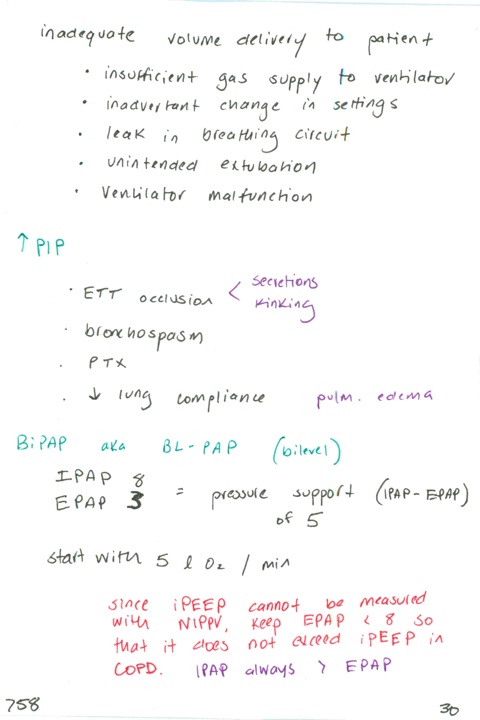 inadequate volume delivery to patient
• insufficient gas supply to ventilator
• inadvertant change in settings
• leak in breathing circuit
• unintended extubation
• ventilator malfunction
↑ PIP
• ETT occlusion < secretions
kinking
• bronchospasm
• PTX
• ↓ lung compliance pulm. edema
BiPAP aka BL-PAP (bilevel)
IPAP 8
EPAP 3 = pressure support (IPAP-EPAP)
of 5
start with 5 l O2 / min
since iPEEP cannot be measured
with NIPPV, keep EPAP < 8 so
that it does not exceed iPEEP in
COPD. IPAP always > EPAP
758 30